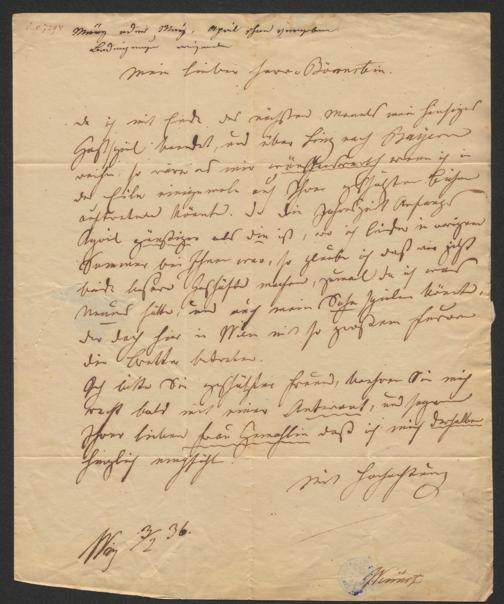 März oder May, April ohne
Bedingungen
Mein lieber Herr Börnstein.
da ich mit Ende des nächsten Monats mein hiesiges
Gastspiel beendet, und über Linz nach Bayern
reise. so wäre es mir wünschenswerth wenn ich in
der Eile einigemale auf Ihrer geschätzten Bühne
auftretten könnte. da die Jahreszeit Anfangs
April günstiger als die ist, wo ich leider im vorigen
Sommer bei Ihnen war, so glaube ich daß wir jetzt
beide bessere Geschäfte machen, zumal da ich was
Neues hätte, und auch mein Sohn spielen könnte,
der doch hier in Wien mit so großem Furore
die Bretter betreten.
Ich bitte Sie geschätzter Freund, Sie mich
recht bald mit einer Antwort, und sagen
Ihrer lieben Frau Gemahlin daß ich mich derselben
herzlich empfehle.
Mit Hochachtung
Wien 3/2 36.